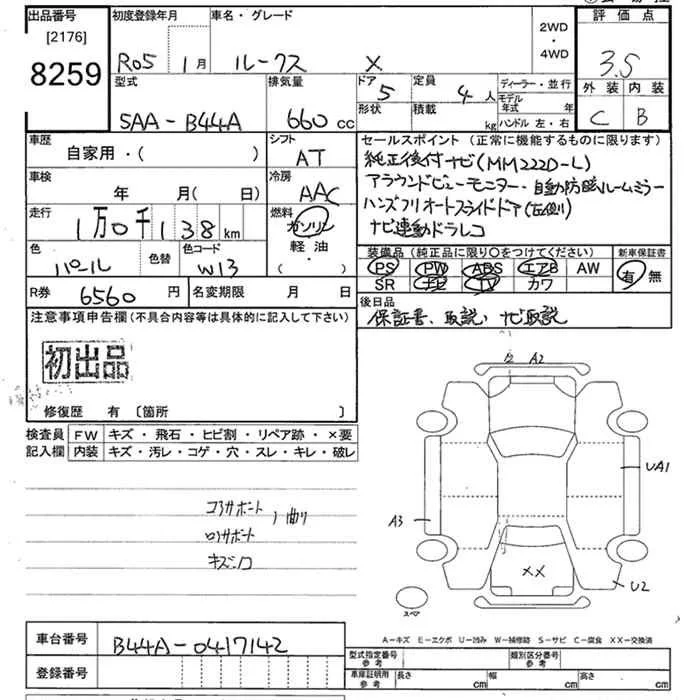 出品番号
[2176]
8259
初度登録年月
R05 1月
車名・グレード
ルークス X
2WD
・
4WD
評価点
3.5
外装 内装
C B
型式
5AA-B44A
排気量
660 cc
ドア
5
定員
4人
形状
積載
kg
ディーラー・並行
モデル年式 年
ハンドル 左・右
車歴
自家用・( )
シフト
AT
車検
年 月( 日)
冷房
AAC
走行
1万0千138km
燃料
ガソリン
軽油・
( )
色
パール
色替
色コード
W13
R券
6560円
名変期限 月 日
セールスポイント(正常に機能するものに限ります)
純正後付ナビ(MM222D-L)
アラウンドビューモニター・自動防眩ルームミラー
ハンズフリーオートスライドドア(左側)
ナビ連動ドラレコ
装備品(純正品に限り〇をつけてください)
新車保証書
PS PW ABS エアB AW
SR ナビ TV カワ
有 無
後日品
保証書、取説、ナビ取説
注意事項申告欄(不具合内容等は具体的に記入して下さい)
初出品
修復歴 有 [箇所 ]
検査員記入欄
FW キズ・飛石・ヒビ割・リペア跡・×要
内装 キズ・汚レ・コゲ・穴・スレ・キレ・破レ
コアサポート
曲り
ロアサポート
キズ
A2
UA1
A3
XX
U2
スペア
A-キズ E-エクボ U-凹み W-補修跡 S-サビ C-腐食 XX-交換済
車台番号
B44A-0417142
登録番号
型式指定番号
参考
類別区分番号
参考
車庫証明用
参考
長さ cm
幅 cm
高さ cm